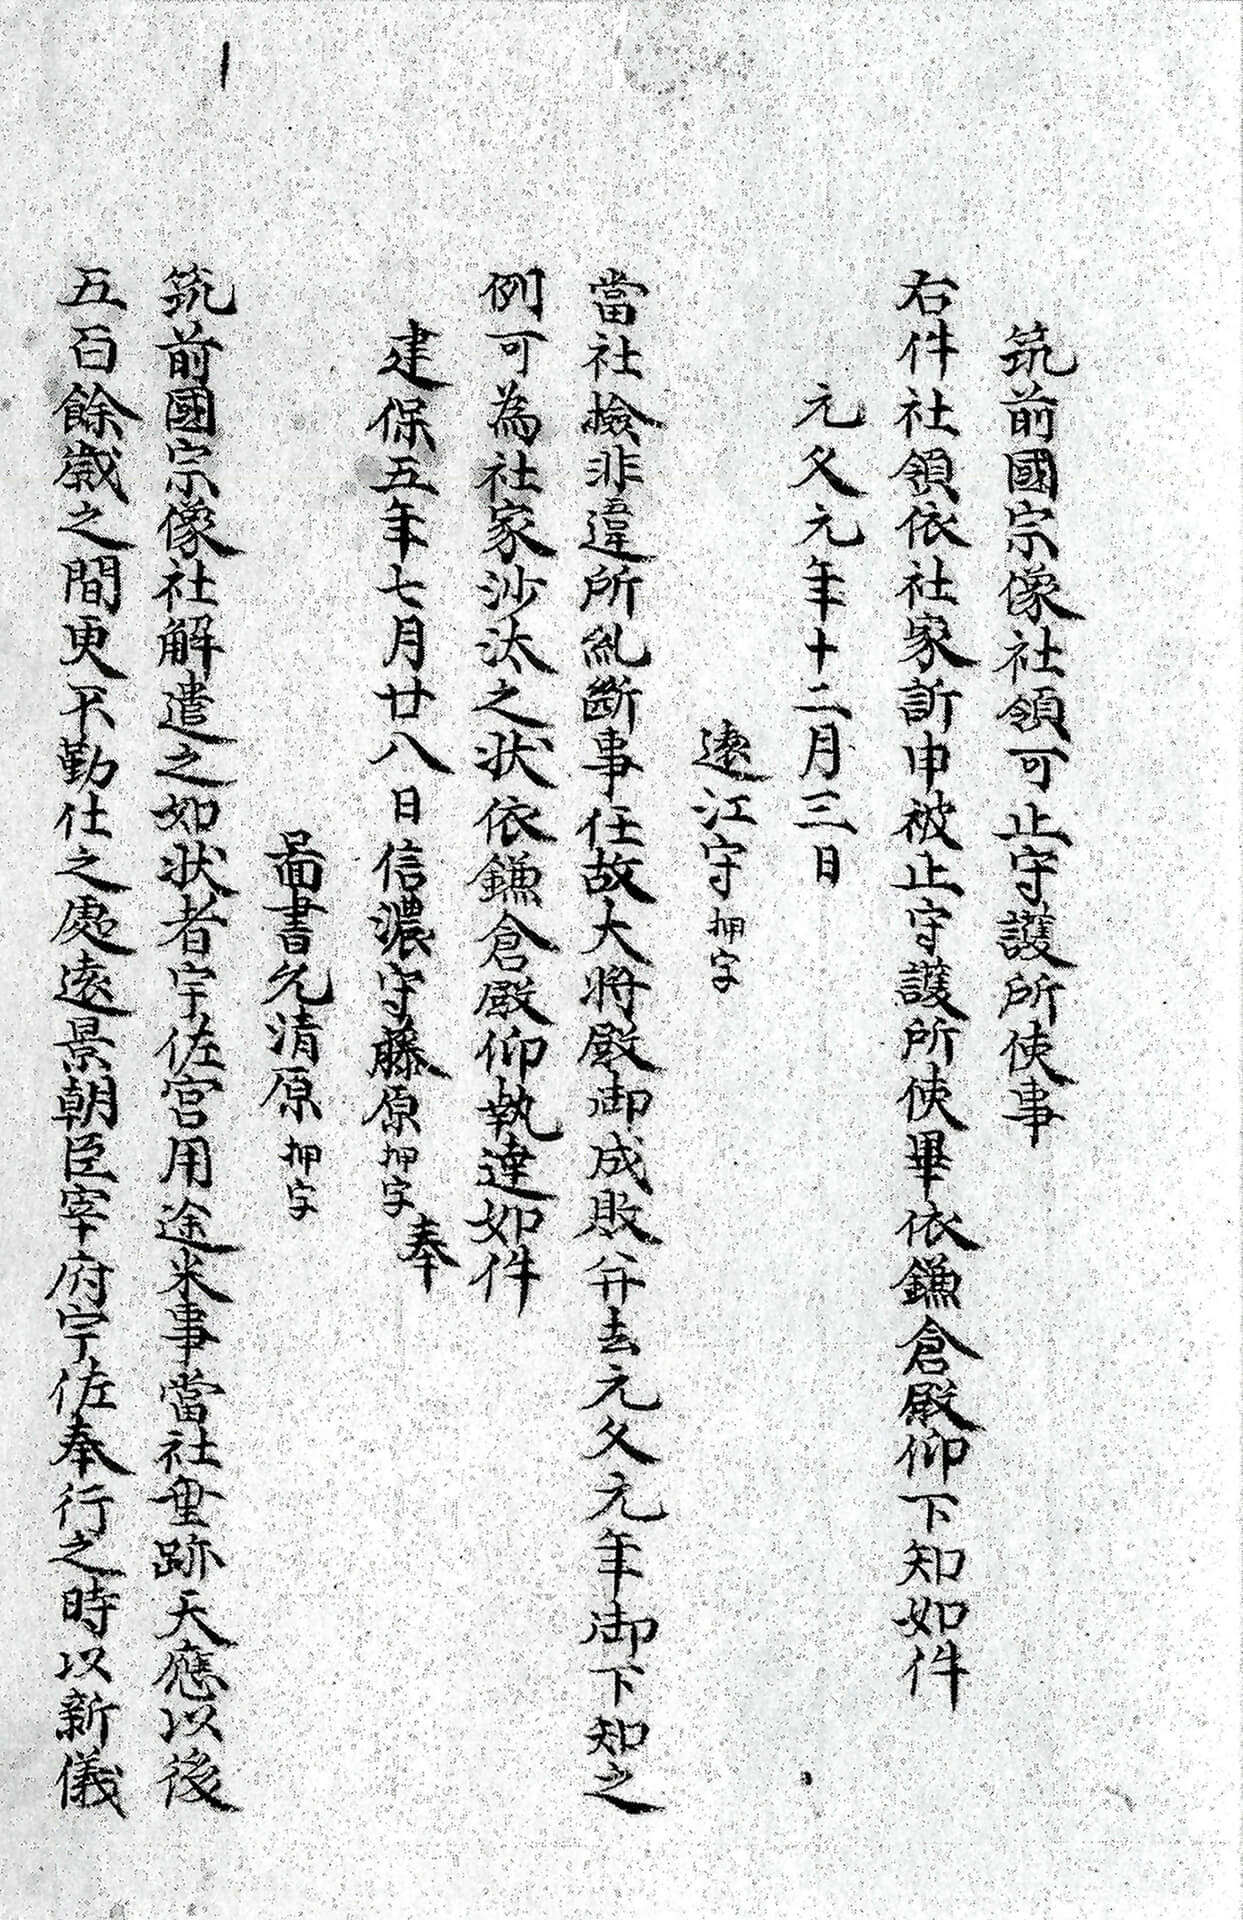 筑前國宗像社領可止守護所使事
右件社領依社家訴申被止守護所使畢依鎌倉殿仰下知如件
元久元年十二月三日
遠江守押字
當社撿非違所糺斷事任故大将殿御成敗并去元久元年御下知之
例可為社家沙汰之状依鎌倉殿仰執達如件
建保五年七月廿八日信濃守藤原押字奉
圖書允清原押字
筑前國宗像社解遣之如状者宇佐宮用途米事當社垂跡天應以後
五百餘歳之間更不勤仕之處遠景朝臣宰府宇佐奉行之時以新儀